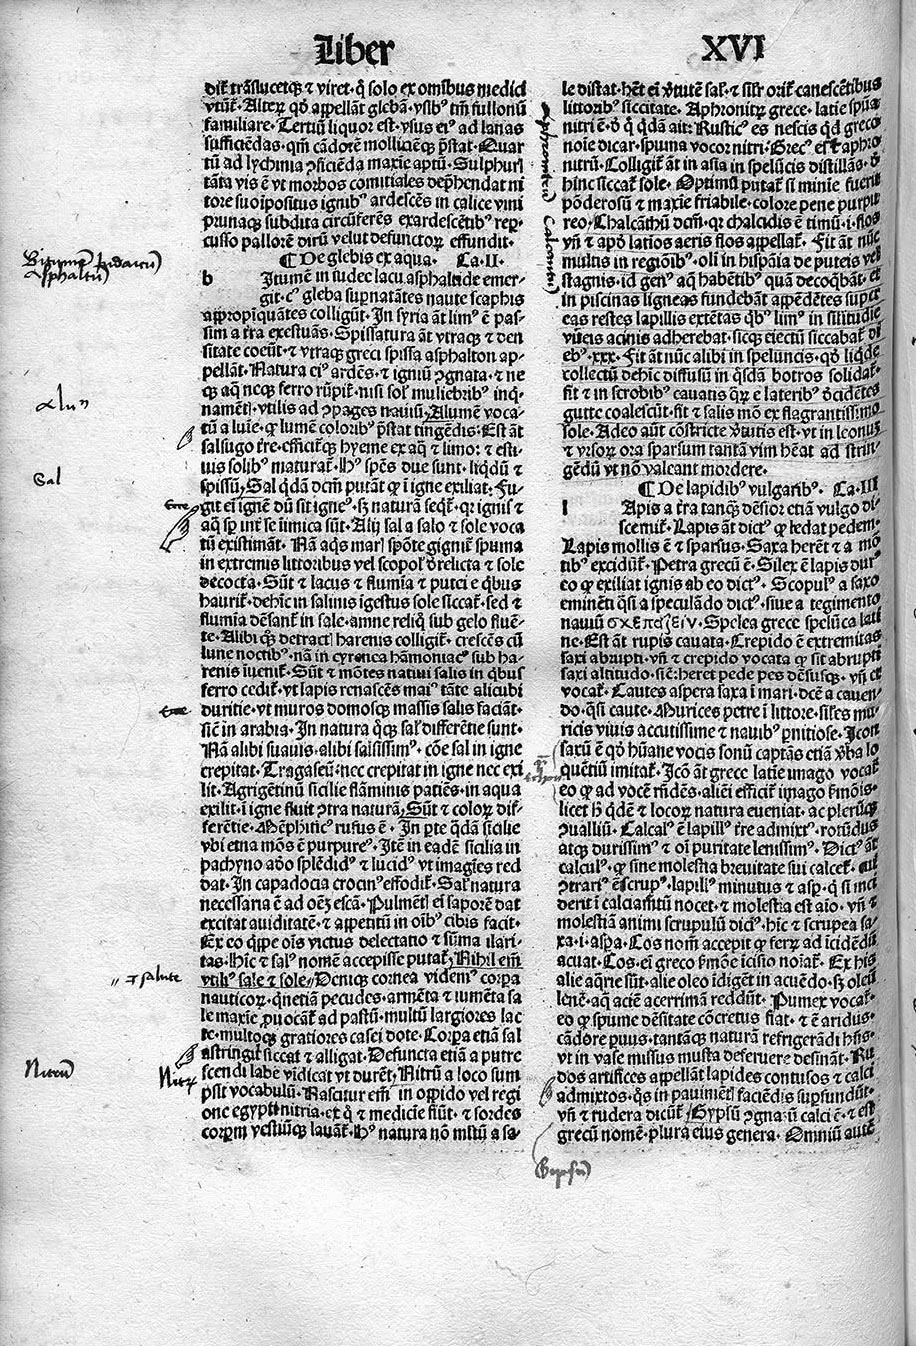 Liber XVI
dit̄ trāslucetqꝫ ⁊ viret · q̄ solo ex omībus medici
vtūt̄ · Alteꝝ qd̄ appellāt glebā · vsibꝰ tm̄ fullonū
familiare · Tertiū liquor est · vsus eiꝰ ad lanas
sufficiēdas · qm̄ cādorē mollicieqꝫ p̄stat · Quar
tū ad lychinia ꝯficiēda maxīe aptū · Sulphuris
tāta vis ē vt morbos comitiales dep̄hendat ni
tore suo īpositus ignibꝰ ardescēs in calice vini
prunaqꝫ subdita circūferēs exardescētibꝰ reꝑ-
cusso pallorē dirū velut defunctoꝝ effundit ·
De glebis ex aqua · Ca · II ·
b Itumē in iudee lacu asphaltide emer-
git · cꝰ gleba supnatātes naute scaphis
appropīquātes colligūt · In syria āt limꝰ ē pas-
sim a t̄ra exestuās · Spissatura āt vtraqꝫ ⁊ den
sitate coeūt · ⁊ vtraqꝫ greci spissa asphalton ap-
pellāt · Natura eiꝰ ardēs · ⁊ igniū ꝯgnata · ⁊ ne
qꝫ aq̄ neqꝫ ferro rūpit̄ · nisi solꝭ muliebribꝰ inq̄-
namētꝭ · vtilis ad ꝯpages nauiū · Alumē voca-
tū a luīe · qꝫ lumē coloribꝰ p̄stat tingēdis · Est āt
salsugo t̄re · efficit̄qꝫ hyeme ex aq̄ ⁊ limo : ⁊ esti-
uis solibꝰ maturat̄ · Hꝰ spēs due sunt · liq̄dū ⁊
spissū · Sal q̄dā dcm̄ putāt ꝙ ī igne exiliat : Fu-
git eī ignē dū sit igneꝰ · sꝫ naturā seq̄t̄ · qꝛ ignis ⁊
aq̄ sꝑ inť se iīmica sūt · Alij sal a salo ⁊ sole voca
tū existimāt · Nā aq̄s marꝭ spōte gignit̄ spuma
in extremis littoribus vel scopolꝭ d̄relicta ⁊ sole
decocta · Sūt ⁊ lacus ⁊ flumīa ⁊ putei e q̄bus
haurit̄ · dehīc in salinis īgestus sole siccat̄ · sed ⁊
flumia dēsant̄ in sale · amne reliq̄ sub gelo fluē-
te · Alibi q̄ꝫ detractꝭ harenis colligit̄ · crescēs cū
lune noctibꝰ · nā in cyrenea hāmoniacꝰ sub ha-
renis īuenit̄ · Sūt ⁊ mōtes natiui salis in q̄bus
ferro cedit̄ · vt lapis renascēs maiꝰ tāte alicubi
duritie · vt muros domosqꝫ massis salis faciāt ·
sic̄ in arabia · In natura q̄ꝫ salꝭ differētie sunt ·
Nā alibi suauis · alibi salsissimꝰ · cōe sal in igne
crepitat · Tragaseū · nec crepitat in igne nec exi
lit · Agrigētinū sicilie flāminis patiēs · in aqua
exilit · ī igne fluit ꝯtra naturā · Sūt ⁊ coloꝝ dif-
ferētie · Mēphiticꝰ rufus ē · In ꝑte q̄dā sicilie
vbi etna mōs ē purpureꝰ · Itē in eadē sicilia in
pachyno adeo splēdidꝰ ⁊ lucidꝰ vt imagīes red
dat · In capadocia crocinꝰ effodit̄ · Salꝭ natura
necessaria ē ad oēꝫ escā · Pulmētꝭ eī saporē dat
excitat auiditatē · ⁊ appetitū in oībꝰ cibis facit ·
Ex eo q̄ppe oīs victus delectatio ⁊ sūma ilari-
tas · Hīc ⁊ salꝰ nomē accepisse putat̄ · Nihil em̄
vtiliꝰ sale ⁊ sole · Deniqꝫ cornea videmꝰ corpa
nauticoꝝ · qnetiā pecudes · armēta ⁊ iumēta sa
le maxīe ꝓuocāt̄ ad pastū · multū largiores lac
te · multoqꝫ gratiores casei dote · Corpa etiā sal
astringit siccat ⁊ alligat · Defuncta etiā a putre
scendi labe vīdicat vt durēt · Nitrū a loco sum
psit vocabulū · Nascitur em̄ in oppido vel regi
one egypti nitria · ex q̄ ⁊ medicīe fiūt · ⁊ sordes
corpm vestiūqꝫ lauāt̄ · Hꝰ natura nō mltū a sa-
le distat · hēt eī v̄tutē salꝭ · ⁊ silr̄ orit̄ canescētibus
littoribꝰ siccitate · Aphronitꝝ grece · latīe spūa
nitri ē · d̄ q̄ q̄dā ait : Rusticꝰ es nescis qd̄ greco
noīe dicar · spuma vocor nitri · Grecꝰ es ⁊ aphro
nitrū · Colligit̄ āt in asia in spelūcis distillās · d̄
hinc siccat̄ sole · Optimū putat̄ si minīe fuerit
pōderosū ⁊ maxīe friabile · colore pene purpu
reo · Chalcāthū dcm̄ · qꝛ chalcidis ē timū · i · flos
vn̄ ⁊ apd̄ latios aeris flos appellat̄ · Fit āt nūc
multis in regiōibꝰ · olī in hispāia de puteis vel
stagnis · id genꝰ aq̄ habētibꝰ quā decoq̄bāt · et
in piscinas ligneas fundebāt appēdētes super
eas restes lapillis extētas q̄bꝰ limꝰ in silitudiē
viteis acinis adherebat · sicqꝫ eiectū siccabat̄ di
ebꝰ · xxx · Fit āt nūc alibi in speluncis · qd̄ liq̄de
collectū dehīc diffusū in q̄sdā botros solidat̄ ·
fit ⁊ in scrobibꝰ cauatis quꝝ e lateribꝰ d̄cidētes
gutte coalescūt · fit ⁊ salis mō ex flagrantissimo
sole · Adeo aūt cōstricte v̄tutis est · vt in leonuꝫ
⁊ vrsoꝝ ora sparsum tantā vim hēat ad strin-
gēdū vt nō valeant mordere ·
De lapidibꝰ vulgaribꝰ · Ca · III
l Apis a t̄ra tanqꝫ dēsior etiā vulgo di-
scernit̄ · Lapis āt dictꝰ ꝙ ledat pedem ·
Lapis mollis ē ⁊ sparsus · Saxa herēt ⁊ a mō
tibꝰ excidūt̄ · Petra grecū ē · Silex ē lapis durꝰ
eo ꝙ exiliat ignis ab eo dictꝰ · Scopulꝰ a saxo
eminēti q̄si a speculādo dictꝰ · siue a tegimento
nauiū · Spelea grece spelūca lati
ne · Est āt rupis cauata · Crepido ē extremitas
saxi abrupti · vn̄ ⁊ crepido vocata ꝙ sit abrupti
saxi altitudo · sic̄ : heret pede pes dēsusqꝫ · vn̄ et
vocat̄ · Cautes aspera saxa ī mari · dcē a cauen
do · q̄si caute · Murices petre ī littore · siles mu-
ricis viuis accutissime ⁊ nauibꝰ ꝑnitiose · Icon
saxū ē qd̄ hūane vocis sonū captās etiā v̄ba lo
quētiū imitat̄ · Icō āt grece latīe imago vocat̄
eo ꝙ ad vocē rn̄dēs · alieī efficit̄ imago s̄mōis ·
licet h̄ q̄dē ⁊ locoꝝ natura eueniat · ac pleruqꝫ
ꝯualliū · Calcal ē lapillꝰ t̄re admixtꝰ · rotūdus
atqꝫ durissimꝰ ⁊ oī puritate lenissimꝰ · Dictꝰ āt
calculꝰ · ꝙ sine molestia breuitate sui calcet̄ · cuiꝰ
ꝯtrariꝰ ē scrupꝰ · lapillꝰ minutus ⁊ aspꝑ · q̄ si inci
derit ī calciamētū nocet · ⁊ molestia est aīo · vn̄ ⁊
molestiā animi scrupulū dicimꝰ · hīc ⁊ scrupea sa-
xa · i · aspa · Cos nomē accepit ꝙ ferꝝ ad īcidēdū
acuat · Cos · eī greco s̄mōe īcisio noīat̄ · Ex his
alie aq̄rie sūt · alie oleo īdigēt in acuēdo · sꝫ oleū
lenē · aq̄ aciē acerrimā reddūt · Pumex vocat̄ ·
eo ꝙ spume dēsitate cōcretus fiat · ⁊ ē aridus ·
cādore ꝑuus · tantāqꝫ naturā refrigerādi hn̄s ·
vt in vase missus musta deferuere desināt · Ru
dos artifices appellāt lapides contusos ⁊ calci
admixtos · q̄s in pauimētꝭ faciēdis supfundūt ·
vn̄ ⁊ rudera dicūt̄ · Gypsū ꝯgnatū calci ē · ⁊ est
grecū nomē · plura eius genera · Omniū autē
Asphaltū
Alun
Sal
⁊ salute
Nitrū
Nitꝝ
Gipsū